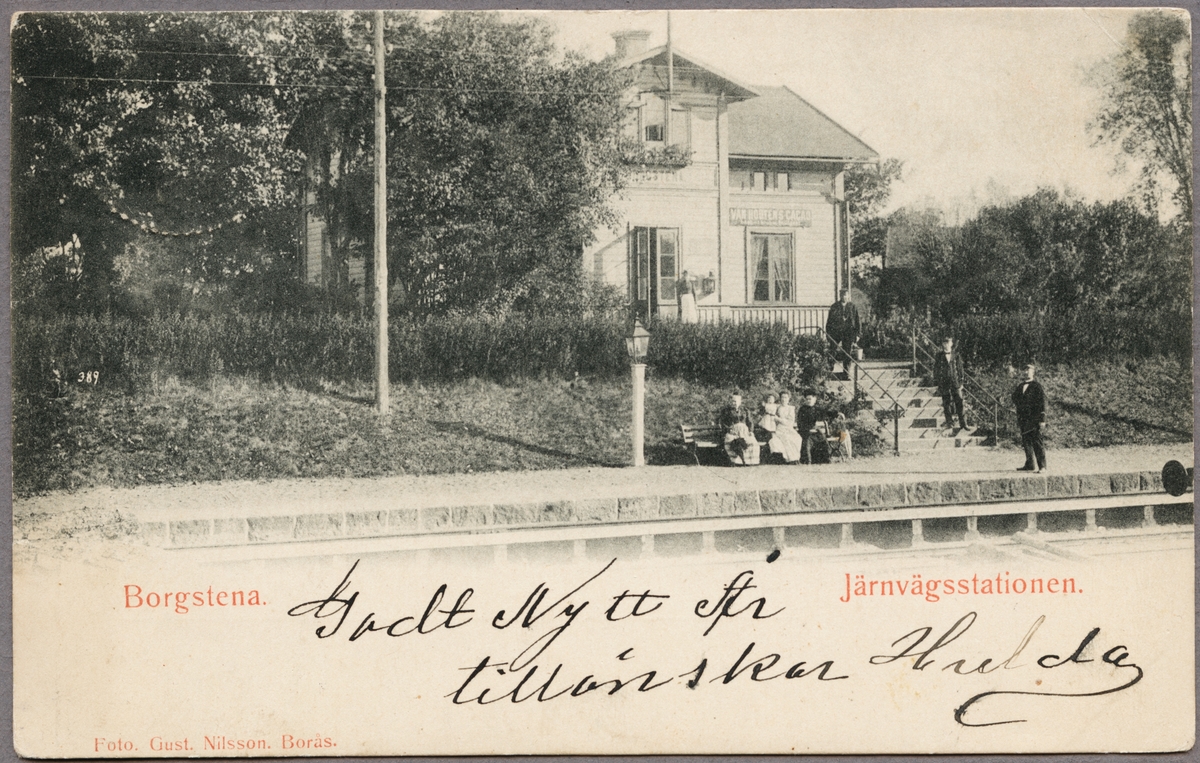 389
Borgstena.
Järnvägsstationen.
Godt Nytt År
tillönskar Hulda
Foto. Gust. Nilsson. Borås.